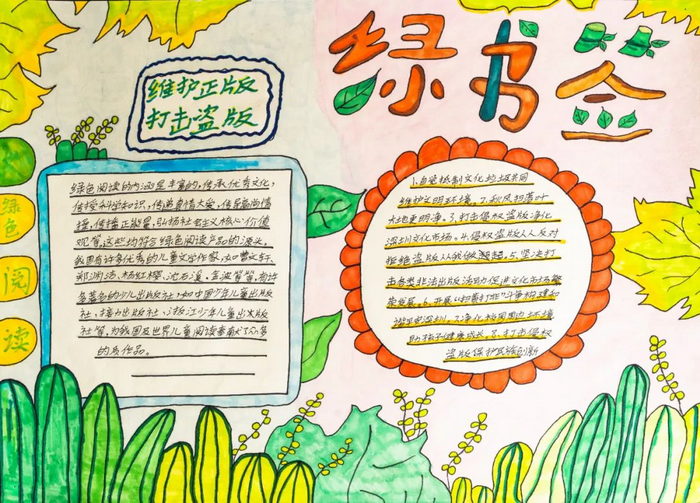 绿书签
维护正版
打击盗版
绿色
阅
读
绿色阅读的内涵是丰富的,传承优秀文化,
传授科学知识,传递真情大爱,传导高尚情
操,传播正能量,弘扬社会主义核心价值
观等,这些均符合绿色阅读产品的源头,
我国有许多优秀的儿童文学作家,如曹文轩,
郑渊洁、杨红樱、沈石溪、金波等等,有许
多著名的少儿出版社,如中国少年儿童出版
社、接力出版社、浙江少年儿童出版
社等,为我国及世界儿童阅读奉献了众多
的好作品。
1.自觉抵制文化垃圾共同
维护文明环境。2.秋风扫落叶
大地更明净。3.打击侵权盗版净化
深圳文化市场。4.侵权盗版人人反对
拒绝盗版从我做起。5.坚决打
击各类非法出版活动促进文化市场繁
荣发展。6.开展"扫黄打非"斗争构建和
谐平安深圳。7.净化校园周边环境
助孩子健康成长。8.打击侵权
盗版保护民族创新